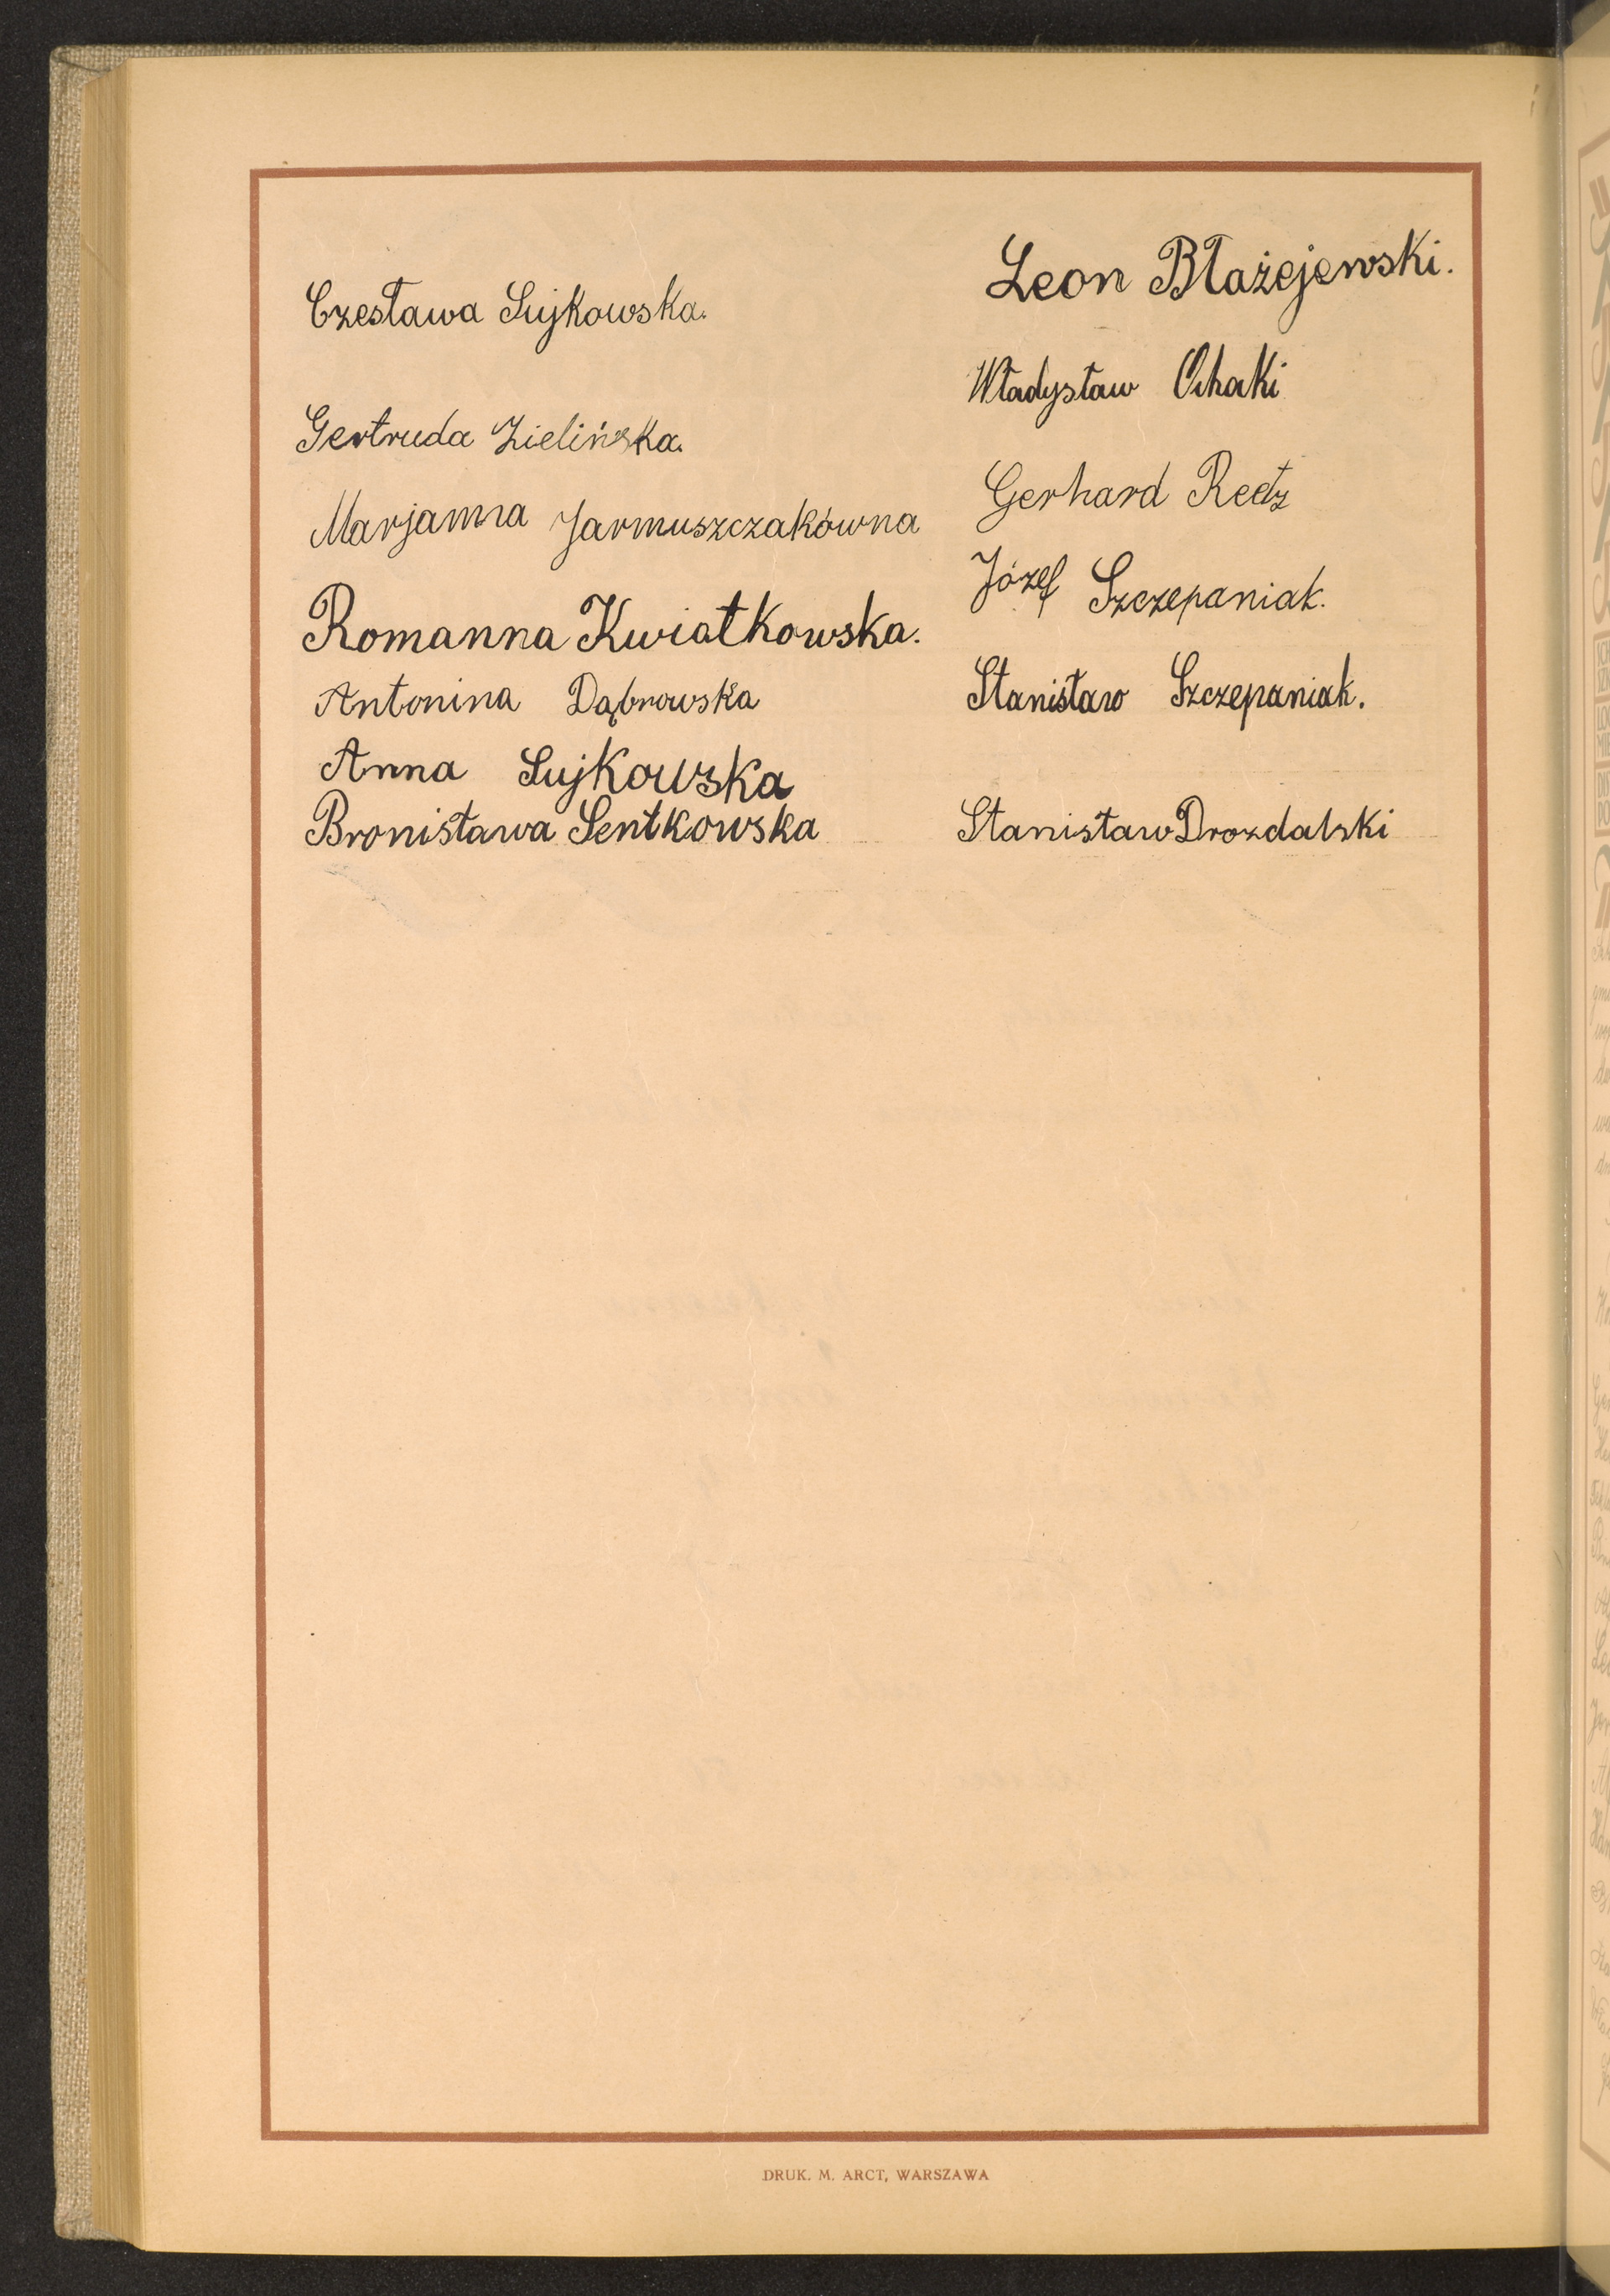 Czesława Sujkowska.
Gertruda Zielińska.
Marjanna Jarmuszczakówna
Romanna Kwiatkowska.
Antonina Dąbrowska
Anna Sujkowska
Bronisława Sentkowska
Leon Błażejewski.
Władysław
Gerhard Redz
Józef Szczepaniak.
Stanisław Szczepaniak.
Stanisław Drozdalski
DRUK. M. ARCT, WARSZAWA